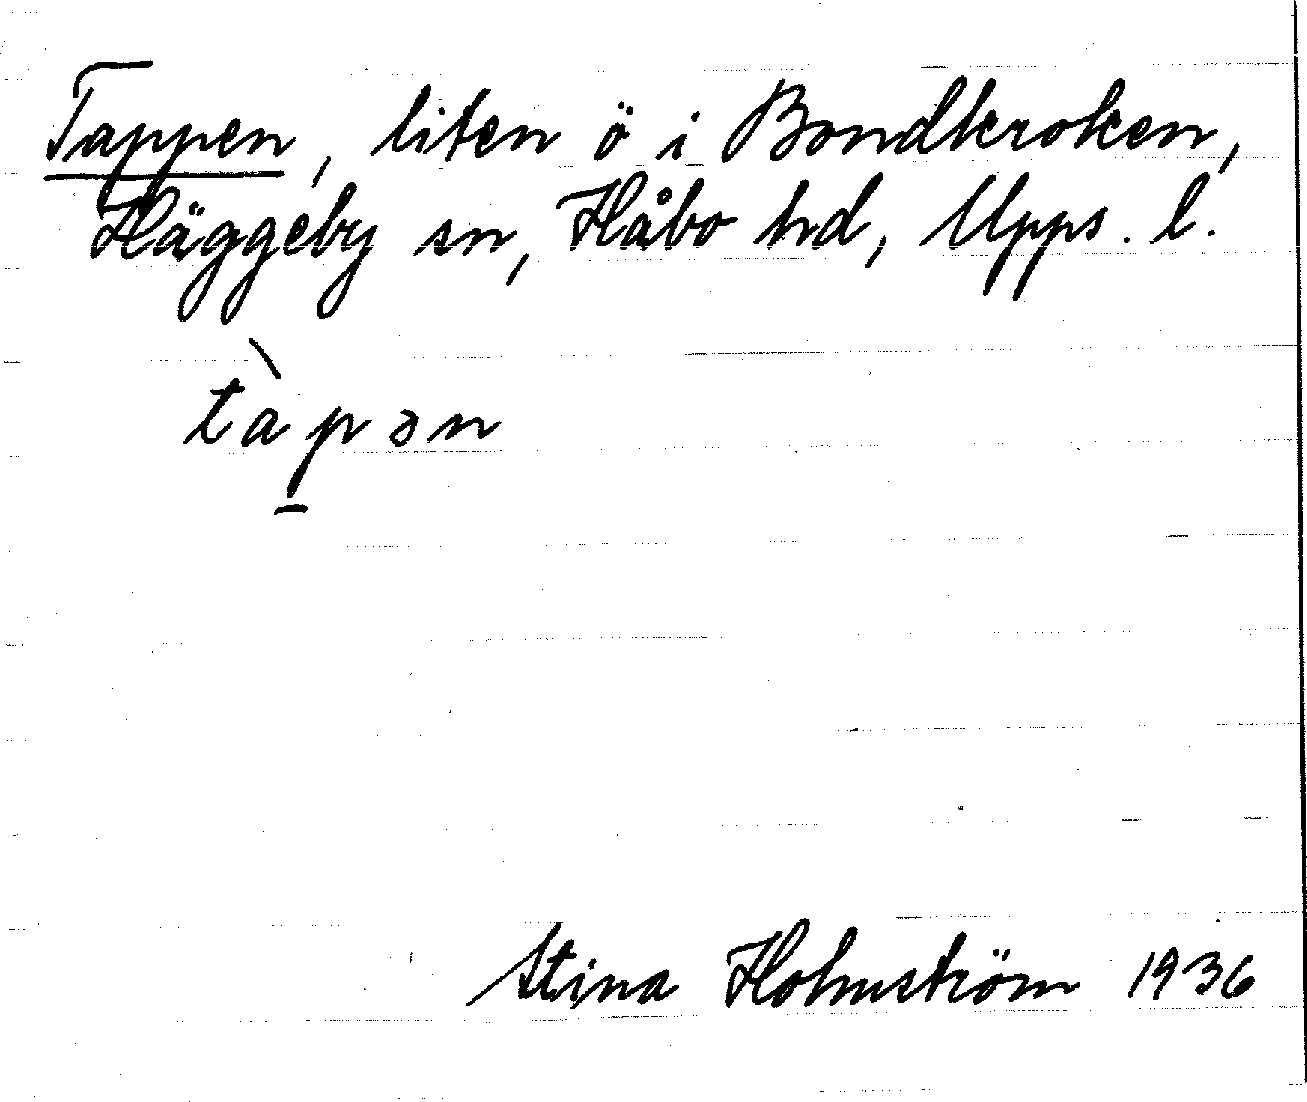 Tappen, liten ö i Bondkroken,
Häggeby sn, Håbo hd, Upps. l.
tàp̠ən
Stina Holmström 1936